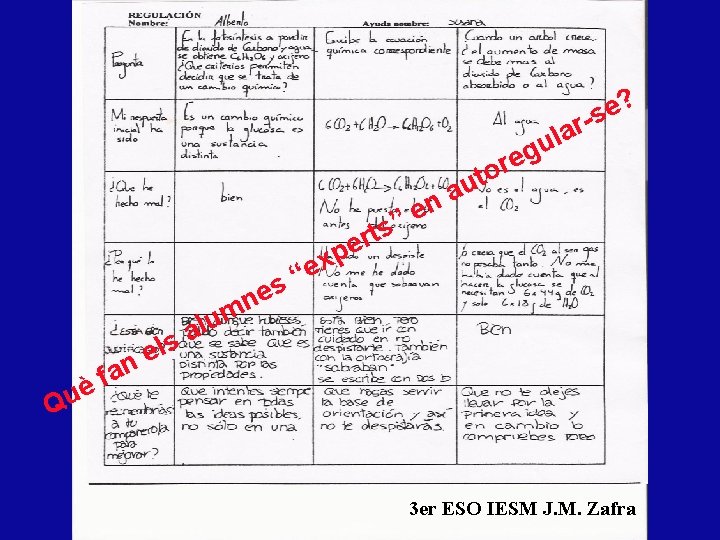 REGULACIÓN
Nombre: Alberto Ayuda nombre: susana
Pregunta
En la fotosíntesis a partir
de dióxido de Carbono y agua
se obtiene C6H12O6 y oxígeno
¿Que criterios permiten
decidir que se trata de
un cambio químico?
Escribe la ecuación
química correspondiente
Cuando un arbol crece
¿el aumento de masa
se debe mas al
dioxido de Carbono
absorbido o al agua?
Mi respuesta
inicial ha
sido
Es un cambio químico
porque la glucosa es
una sustancia
distinta
6CO2 + 6H2O → C6H12O6 + O2
Al agua
¿Que he
hecho mal?
bien
6CO2 + 6H2O → C6H12O6 + 6O2
No he puesto
antes del oxigeno
No es el agua, es
el CO2
¿Por qué lo
he hecho
mal?
un despiste
No me he dado
cuenta que sobravan
oxigenos
creia que el CO2 al ser gas
no pesaba tanto. No me
habia dado cuenta que al
hacer la glucosa se
necesitan 6 x 44 g de CO2
y solo 6 x 18 g de H2O
¿Están bien
justificadas
Aunque hubieses
podido decir también
que se sabe que es
una sustancia
distinta por las
propiedades.
Está bien, pero
tienes que ir con
cuidado en no
despistarte. También
con la ortografia
"sobraban"
se escribe con dos B
Bien
¿Qué le
recomendarías
a tu
compañero/a
para
mejorar?
Que intentes siempre
pensar en todas
las ideas posibles,
no sólo en una
Que hagas servir
la base de
orientación y así
no te despistarás.
Que no te dejes
llevar por la
primera idea y
en cambio lo
compruebes todo
Què fan els alumnes “experts” en autoregular-se?
3er ESO IESM J.M. Zafra